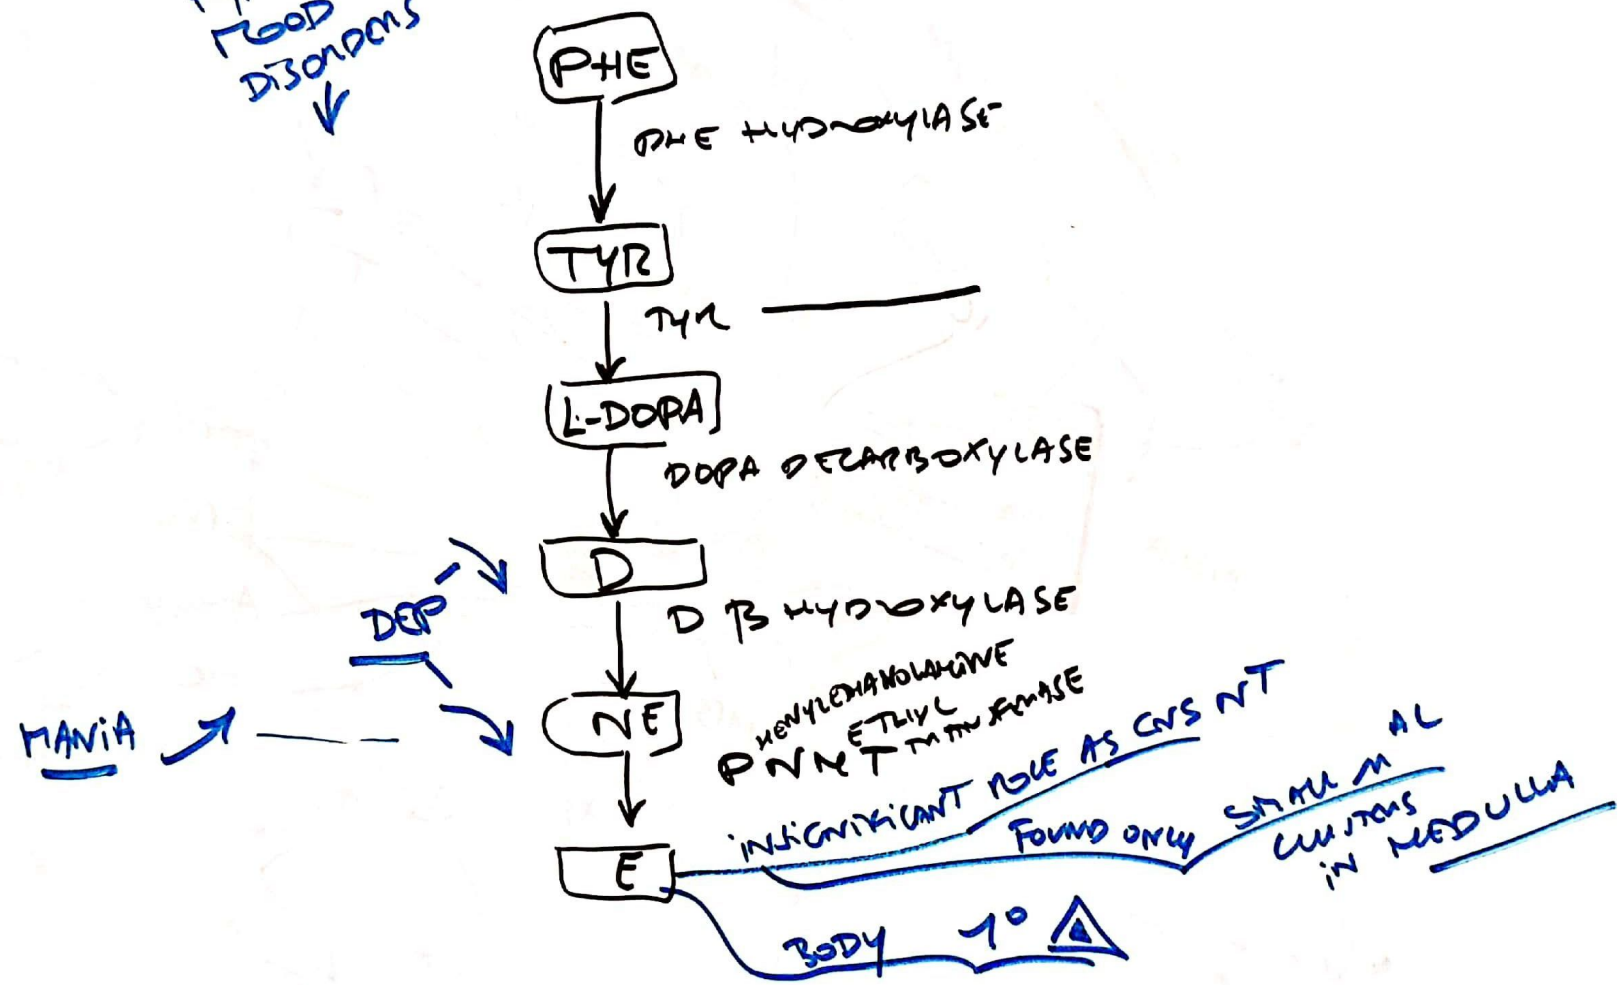 MOOD
DISORDERS
PHE
PHE HYDROXYLASE
TYR
TYR
L-DOPA
DOPA DECARBOXYLASE
D
D β HYDROXYLASE
DEP
MANIA
NE
PHENYLETHANOLAMINE
ETHYL
TRANSFERASE
PNMT
E
INSIGNIFICANT ROLE AS CNS NT
FOUND ONLY
SMALL
CLUSTERS
IN MEDULLA
BODY 1°